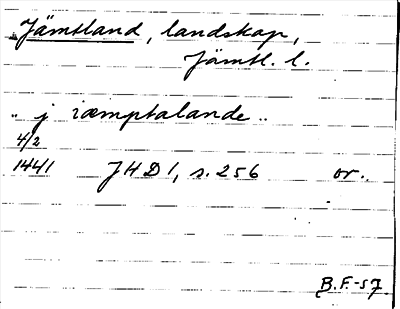 Jämtland, landskap,
Jämtl. l.
„ j iæmptalande „
4/2
1441 JHD 1, s. 256 or.
B.F.-57.